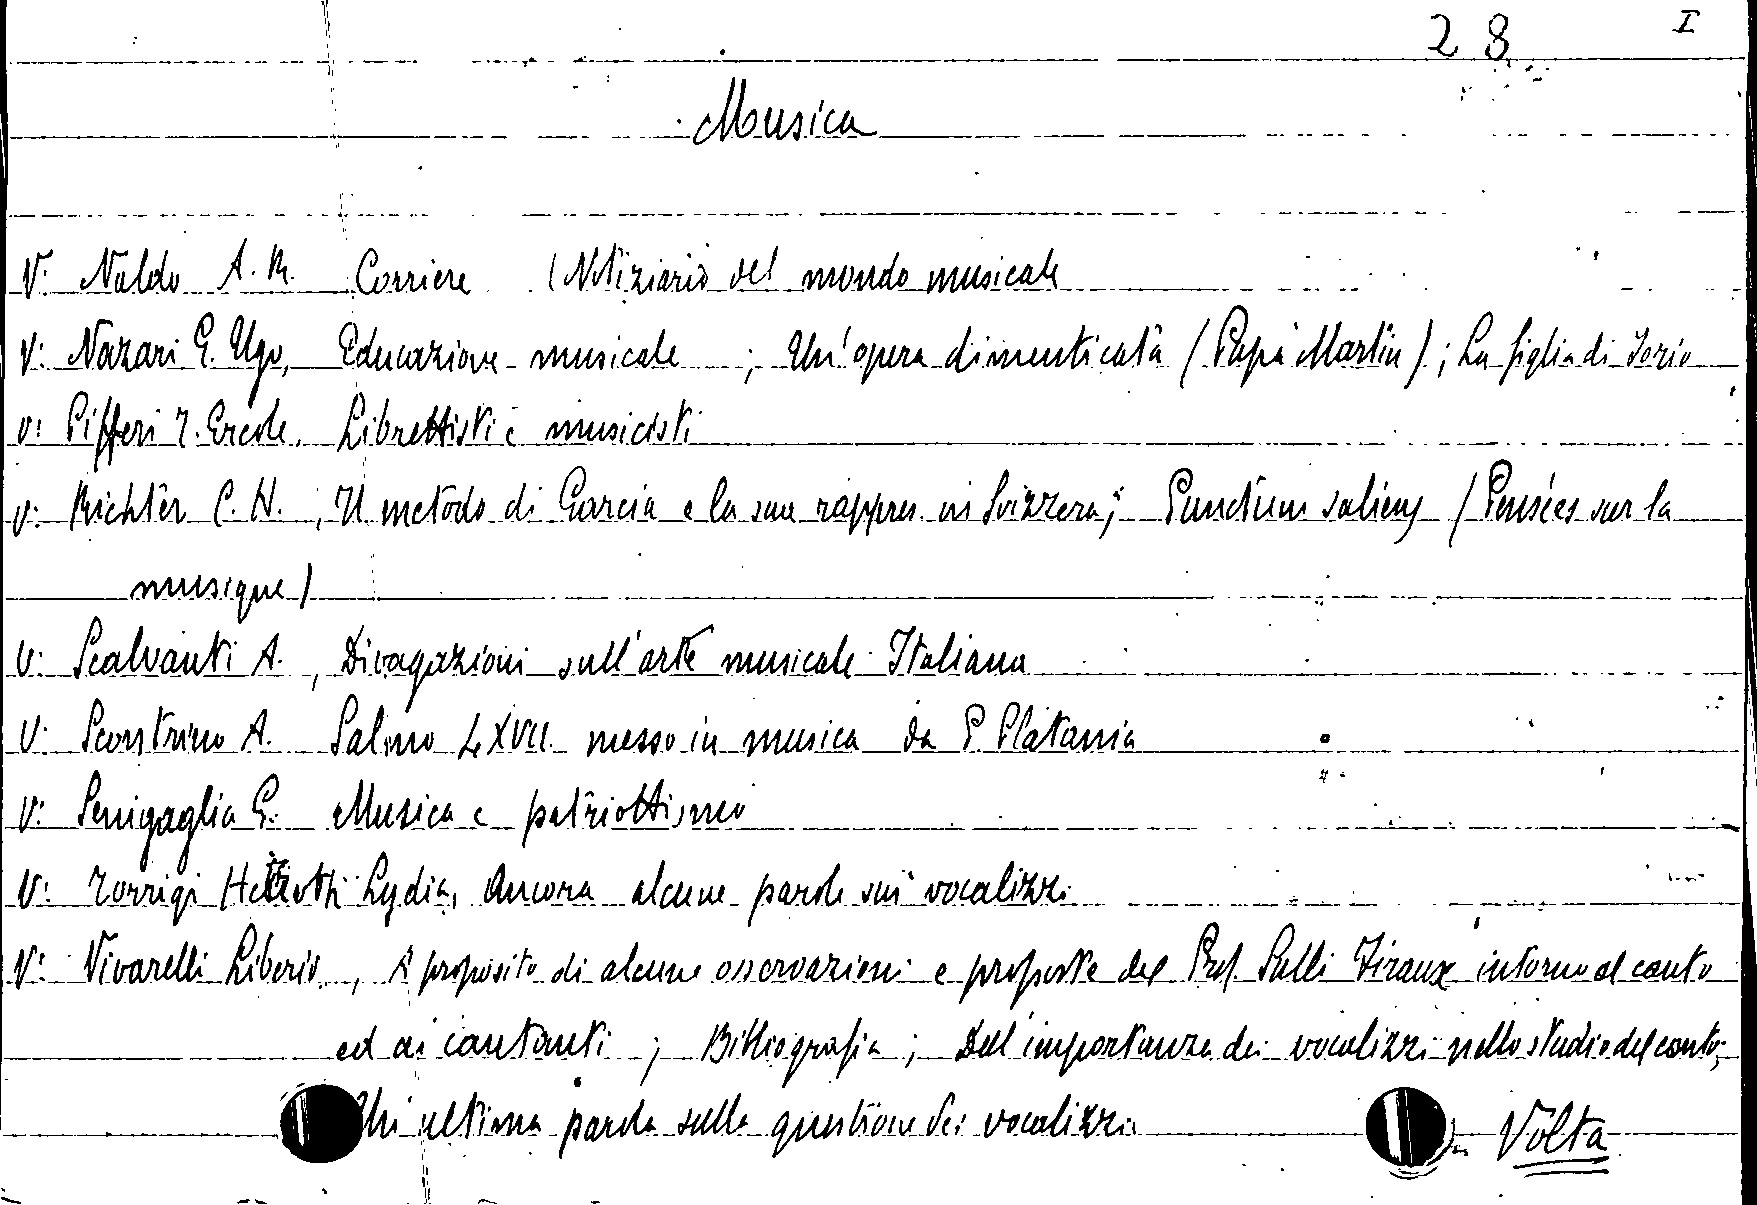 28 I
Musica
V: Naldo A. R. Corriere (Notiziario del mondo musicale
V: Nazari G. Ugo, Educazione musicale ; Un'opera dimenticata (Papà Martin) ; La figlia di Jorio
V: Pifferi T. Ercole. Librettisti e musicisti
V: Richter C. H. , Il metodo di Garcia e la sua rappres. in Svizzera; Punctum saliens (Pensées sur la
musique)
V: Scalvanti A. , Divagazioni sull'arte musicale Italiana
V: Scontrino A. Salmo LXVII messo in musica da P. Platania
V: Senigaglia G. Musica e patriottismo
V: Torrigi Lydia, Ancora alcune parole sui vocalizzi
V: Vivarelli Liberio , A proposito di alcune osservazioni e proposte del Prof. Sulli Firaux intorno al canto
ed ai cantanti ; Bibliografia ; Dell'importanza dei vocalizzi nello studio del canto;
Un'ultima parola sulla questione dei vocalizzi
Volta